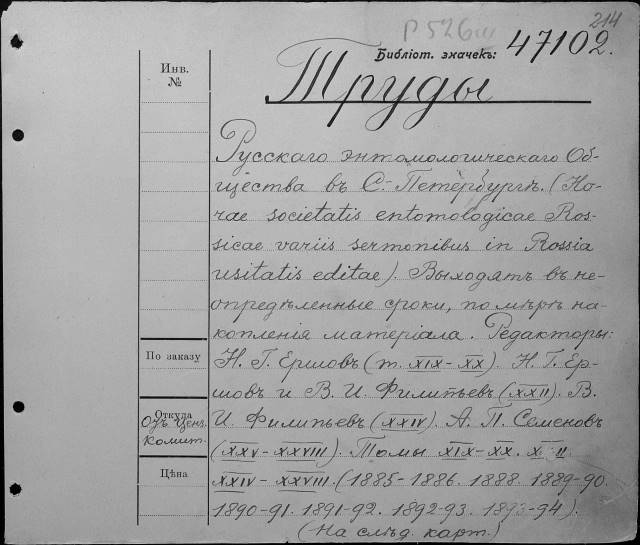 214
P 526 III
Библіот. значекъ: 47102.
Инв.
№
Труды
Русскаго энтомологическаго Об-
щества въ С.-Петербургѣ. (Ho-
rae societatis entomologicae Ros-
sicae variis sermonibus in Rossia
usitatis editae). Выходятъ въ не-
опредѣленные сроки, по мѣрѣ на-
копленія матеріала. Редакторы:
По заказу
Н. Г. Ершовъ (т. XIX-XX). Н. Г. Ер-
шовъ и В. И. Филипьевъ (XXII). В.
Откуда
Отъ Ценз.
комит.
И. Филипьевъ (XXIV). А. П. Семеновъ
(XXV-XXVIII). Томы XIX-XX. XXII.
Цѣна
XXIV-XXVIII. (1885-1886. 1888. 1889-90.
1890-91. 1891-92. 1892-93. 1893-94).
(На слѣд. карт.)